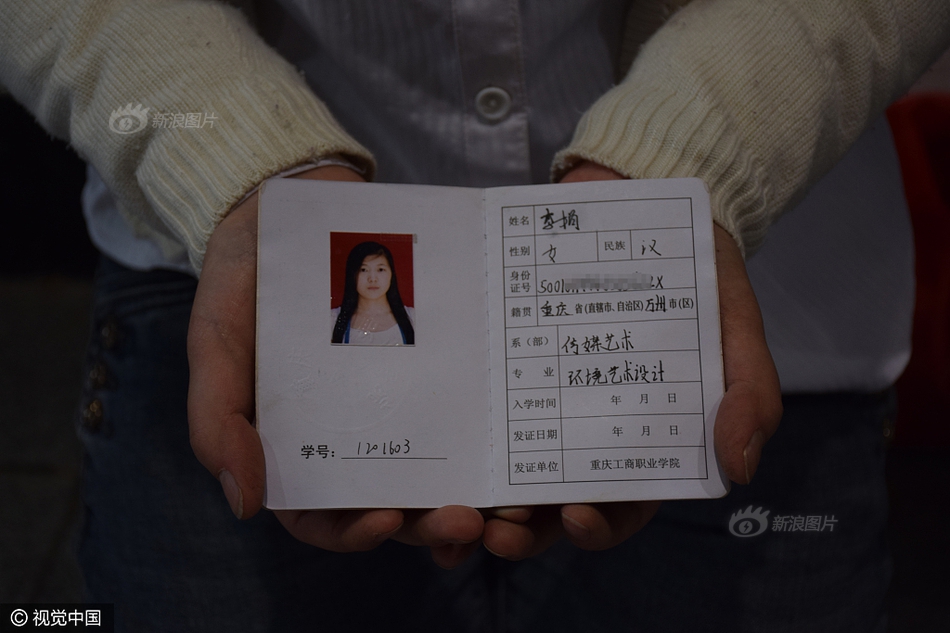 新浪图片
姓名 李娟
性别 女 民族 汉
身份证号 50010 2X
籍贯 重庆省(直辖市、自治区)万州市(区)
系(部) 传媒艺术
专业 环境艺术设计
入学时间 年 月 日
发证日期 年 月 日
发证单位 重庆工商职业学院
学号: 1201603
新浪图片
© 视觉中国